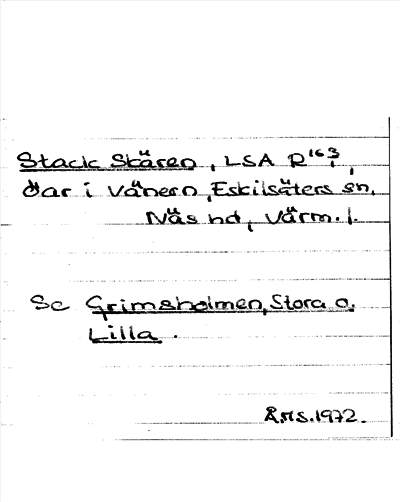 Stack Skären, LSA R 16 3,
öar i Vänern, Eskilsäters sn,
Näs hd, Värm. l.
Se Grimsholmen, Stora o.
Lilla.
ÅMS. 1972.